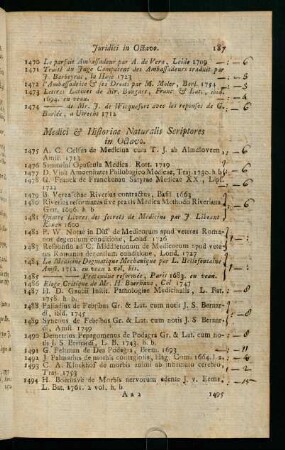 Juridici in Octavo. 187
1470 Le parfait Ambassadeur par A. de Vera, Leide 1709
1471 Traité du Juge Competent des Ambassadeurs traduit par
J. Barbeyrac, la Haye 1723
1472 l'Ambassadrice & ses Droits par M. Moser, Berl. 1754
1473 Lettres Latines de Mr. Bongars, Franc. & Lat.
1694. en veau.
1474 de Mr. J. de Wicquefort avec les reponses de G.
Barlée, a Utrecht 1712
Medici & Historiae Naturalis Scriptores
in Octavo.
1475 A. C. Celsus de Medicina cum T. J. ab Almeloveen
Amst. 1713
1476 Simonini Opuscula Medica. Rott. 1719
1477 D. Vink Amoenitates Philologico Medicae, Traj. 1730. h. b
1478 G. Franck de Franckenau Satyrae Medicae XX, Lips.
1722
1479 B. Verzascha Riverius contractus, Basil 1663
1480 Riverius reformatus sive praxis Medica Methodo Riveriana
Gen. 1696. h. b
1481 Quatre Livres des secrets de Medecine par J. Liebaut
Rouen 1600
1482 P. W. Notae in Diss. de Medicorum apud veteres Romanos
degentium conditione, Lond. 1726
1483 Responsio ad C. Middletoni de Medicorum apud veteres
Romanos degentium conditione, Lond. 1727
1484 La Medecine Dogmatique Mechanique par
Amst. 1712. en veau 2 vol. bes.
1485 Pretendue reformée, Paris 1683. en veau.
1486 Eloge Critique de Mr. H. Boerhave, Col 1747
1487 H. D. Gaubii Instit. Pathologiae Medicinalis, L. Bat.
1758. h. b
1488 Palladius de Febribus Gr. & Lat. cum notis J. S. Bernardi,
ibid. 1745
1489 Synesius de Febribus Gr. & Lat. cum notis J. S. Bernardi,
Amst. 1749
1490 Demetrius Pepagomenus de Podagra Gr. & Lat. cum notis
J. S. Bernardi, L. B. 1743. h. b
1491 G. Fehrman de Dea Podagra, Brem. 1693
1492 J. Palmarius de morbis contagiosis, Hag. Com. 1664.
1493 C. A. Kloekhof de morbis animi ab infirmato cerebro,
Traj. 1753
1494 H. Boerhaave de Morbis nervorum edente J. v. Eems,
L. Bat. 1761. 2 vol. h. b
A a 2 1495